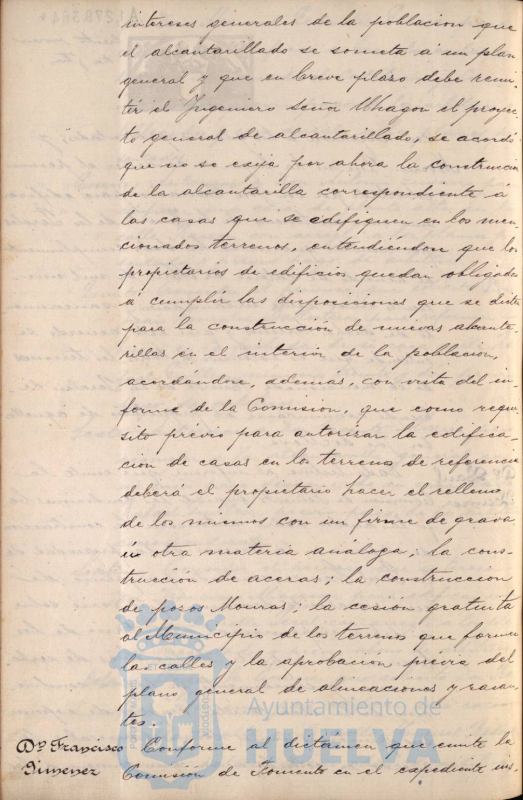 intereses generales de la poblacion que
el alcantarillado se someta á un plan
general y que en breve plazo debe remi-
tir el Ingeniero Señor Uhagon el proyec-
to general de alcantarillado, se acordó
que no se exija por ahora la construccion
de la alcantarilla correspondiente á
las casas que se edifiquen en los men-
cionados terrenos, entendiéndose que los
propietarios de edificios quedan obligados
á cumplir las disposiciones que se dicten
para la construcción de nuevas alcanta-
rillas en el interior de la poblacion,
acordándose, además, con vista del in-
forme de la Comision, que como requi-
sito previo para autorizar la edifica-
cion de casas en los terrenos de referencia
deberá el propietario hacer el relleno
de los mismos con un firme de grava
ú otra materia análoga; la cons-
trucción de aceras; la construccion
de pozos Mouras; la cesión gratuita
al Municipio de los terrenos que forman
las calles y la aprobación prévia del
plano general de alineaciones y rasan-
tes.
Dn. Francisco
Jimenez
Conforme al dictámen que emite la
Comisión de Fomento en el expediente ins-
Ayuntamiento de
HUELVA